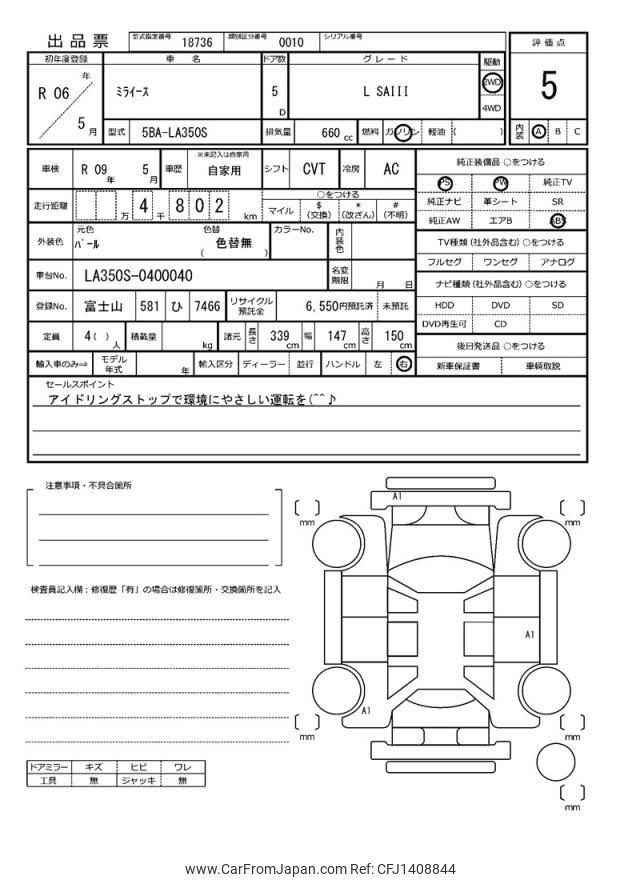 出品票 型式指定番号 18736 類別区分番号 0010 シリアル番号
評価点
5
内装 A B C
初年度登録 車 名 ドア数 グレード 駆動
R 06 年 5 月 ミライース 5 D L SAIII 2WD 4WD
型式 5BA-LA350S 排気量 660 cc 燃料 ガソリン 軽油 ( )
車検 R 09 年 5 月 車歴 ※未記入は自家用 自家用 シフト CVT 冷房 AC
走行距離 万 4 千 8 0 2 km ○をつける
マイル $ (交換) * (改ざん) # (不明)
外装色 元色 パール 色替 色替無 ( ) カラーNo. 内装色
車台No. LA350S-0400040 名変期限 月 日
登録No. 富士山 581 ひ 7466 リサイクル預託金 6,550円預託済 未預託
定員 4( ) 人 積載量 kg 諸元 長さ 339 cm 幅 147 cm 高さ 150 cm
輸入車のみ⇒ モデル年式 年 輸入区分 ディーラー 並行 ハンドル 左 右
純正装備品 ○をつける
PS PW 純正TV
純正ナビ 革シート SR
純正AW エアB ABS
TV種類 (社外品含む) ○をつける
フルセグ ワンセグ アナログ
ナビ種類 (社外品含む) ○をつける
HDD DVD SD
DVD再生可 CD
後日発送品 ○をつける
新車保証書 車輌取説
セールスポイント
アイドリングストップで環境にやさしい運転を(^^♪
注意事項・不具合箇所
検査員記入欄:修復歴「有」の場合は修復箇所・交換箇所を記入
ドアミラー キズ ヒビ ワレ
工具 無 ジャッキ 無
A1
[ ] mm
[ ] mm
A1
A1
[ ] mm
[ ] mm
[ ] mm
www.CarFromJapan.com Ref: CFJ1408844